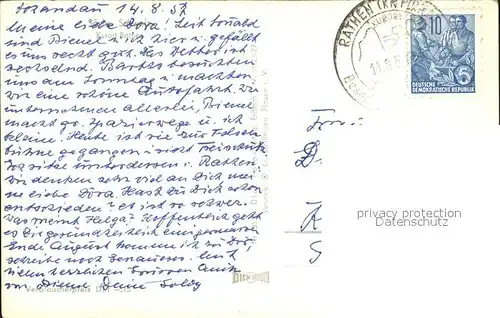 14.8.57
Meine liebe Dora! Seit Sonnabend
sind Bienel u. ich hier u. gefällt
es uns recht gut. Das Wetter ist
wechselnd. besuchten
uns am Sonntag u. machten
wir eine schöne Autofahrt. Wir
unternehmen allerlei, Bienel
macht gr. Spazierwege u. ich
kleine. Heute ist sie zur Felsen
bühne gegangen Freischütz
Ich sitze unterdessen i. Rathen
wir denken sehr viel an Dich mei
ne liebe Dora. Hast Du Dich schon
entschieden? es ist so schwer.
Was meint Helga? Hoffentlich geht
es Dir gesundheitlich einigermaßen
Ende August komme ich zu Dir,
schreibe noch Genaueres. Mit
vielen herzlichen Grüssen auch
von Bienel Deine
Verbraucherpreis DM -,15
RATHEN (KR PIRNA)
KURORT
10
DEUTSCHE
DEMOKRATISCHE REPUBLIK
D.
K
S
privacy protection
Datenschutz